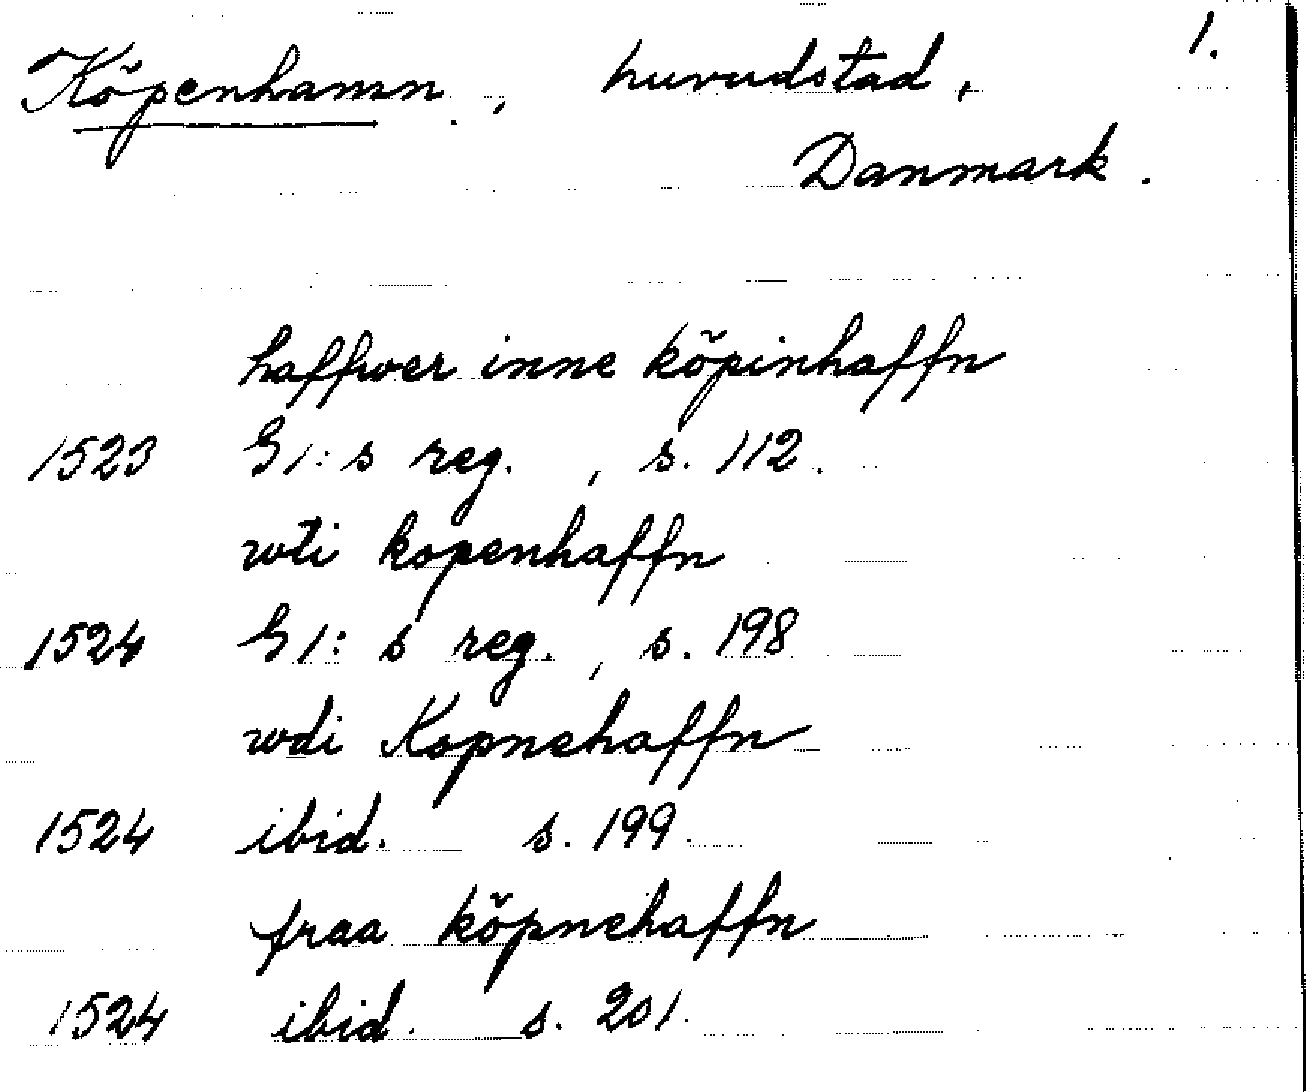 1.
Köpenhamn, huvudstad,
Danmark.
haffwer inne köpinhaffn
1523 G1:s reg., s. 112.
wti kopenhaffn
1524 G1:s reg., s. 198
wdi Kopnehaffn
1524 ibid. s. 199.
fraa köpnehaffn
1524 ibid. s. 201.